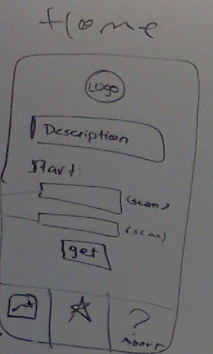 Home
Logo
Description
Start:
(scan)
(scan)
get
?
About